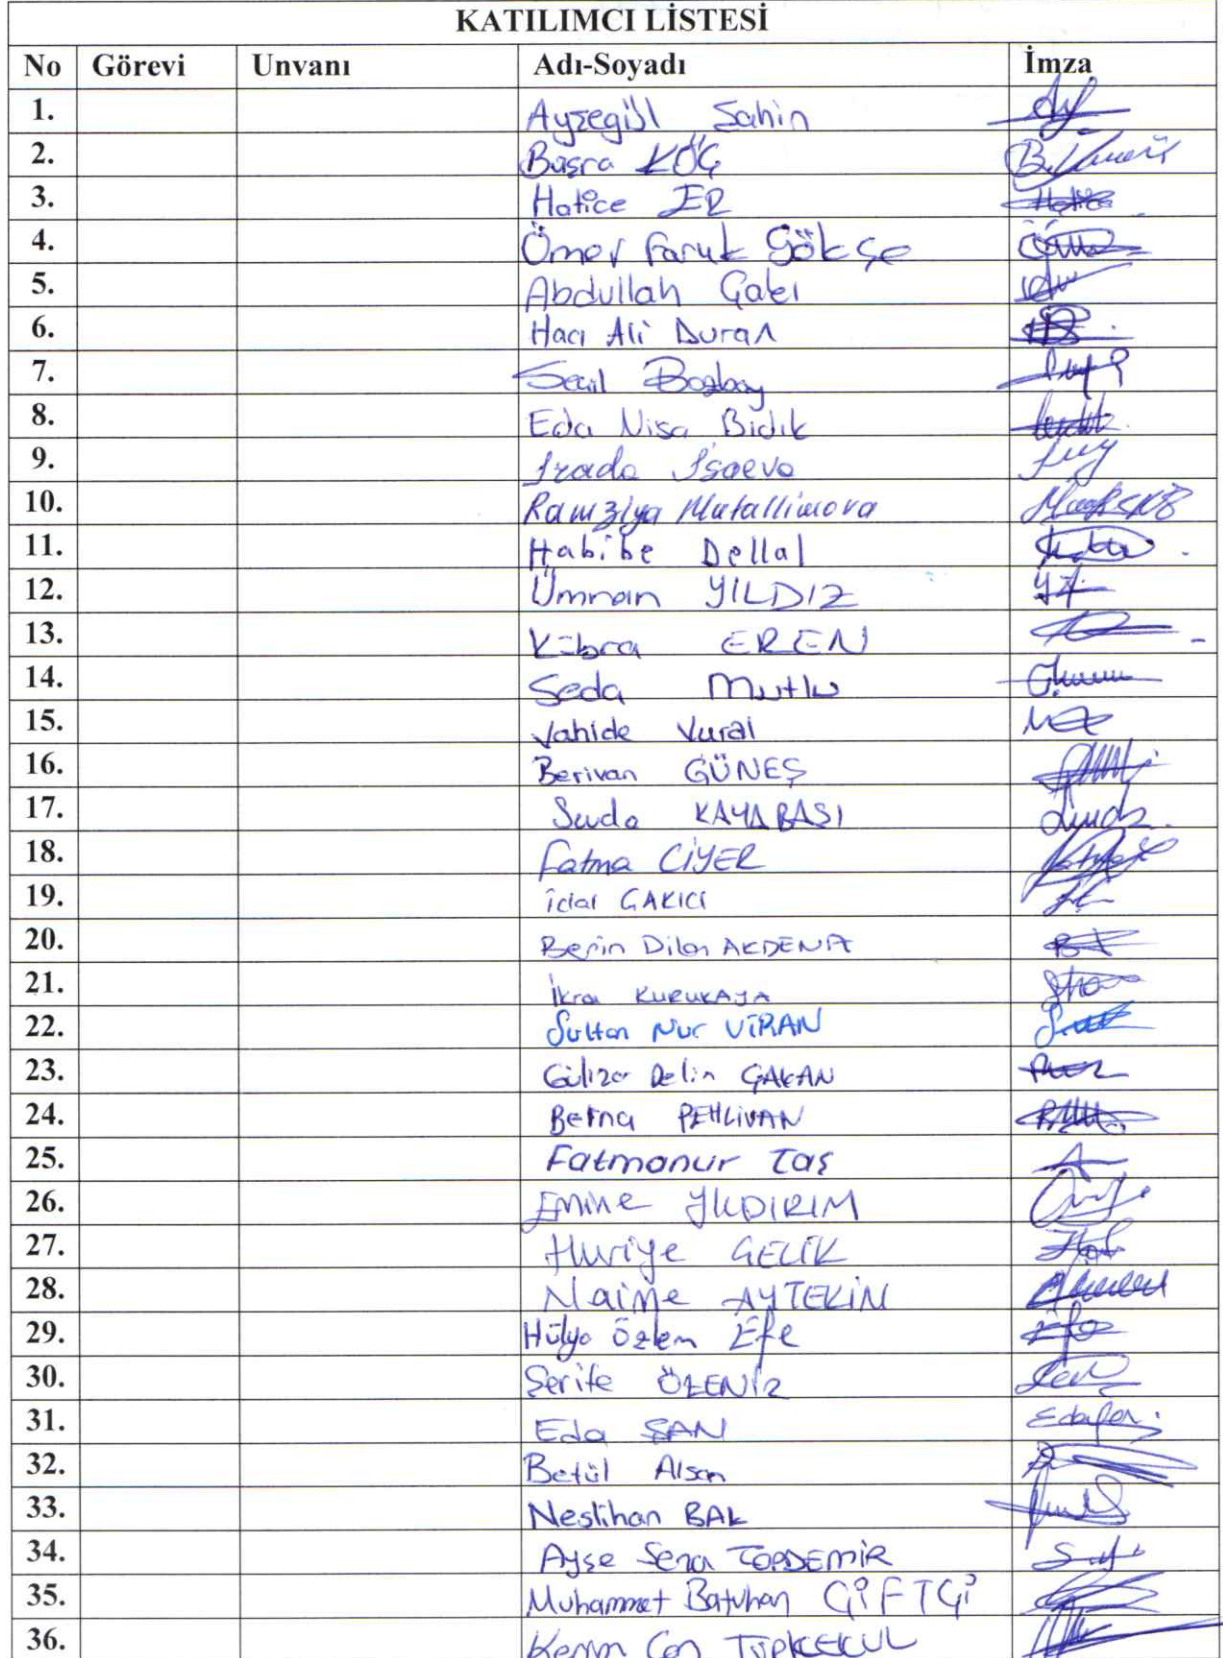 KATILIMCI LİSTESİ
No Görevi Unvanı Adı-Soyadı İmza
1. Ayşegül Şahin
2. Büşra KOÇ
3. Hatice ER
4. Ömer Faruk Gökçe
5. Abdullah Çakı
6. Hacı Ali Duran
7. Seçil Bozbay
8. Eda Nisa Bıdık
9. İrada İsaeva
10. Ramziya Mutallimova
11. Habibe Dellal
12. Ümran YILDIZ
13. Kübra EREN
14. Seda Mutlu
15. Vahide Vural
16. Berivan GÜNEŞ
17. Sevda KAYABAŞI
18. Fatma CİYER
19. İclal ÇAKICI
20. Berin Dilan AKDENİZ
21. İkra KURUKAYA
22. Sultan Nur VİRAN
23. Gülizar Pelin ÇAKAN
24. Berna PEHLİVAN
25. Fatmanur Taş
26. Emine YILDIRIM
27. Huriye ÇELİK
28. Naime AYTEKİN
29. Hülya Özlem Efe
30. Şerife ÖZENİZ
31. Eda ŞAN
32. Betül Alsan
33. Neslihan BAL
34. Ayşe Sena TOPDEMİR
35. Muhammet Batuhan ÇİFTÇİ
36. Kerim Can